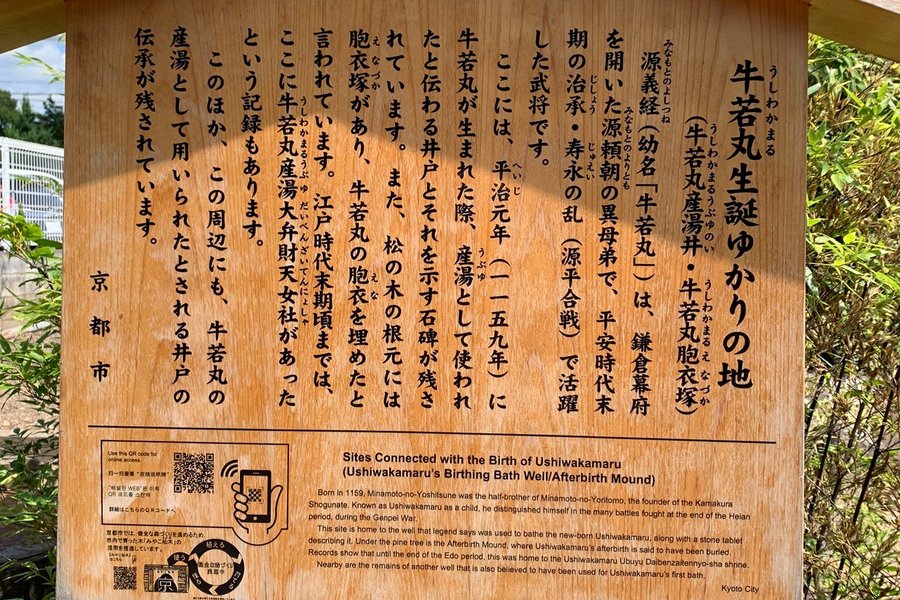 牛若丸生誕ゆかりの地
（牛若丸産湯井・牛若丸胞衣塚）
源義経（幼名「牛若丸」）は、鎌倉幕府
を開いた源頼朝の異母弟で、平安時代末
期の治承・寿永の乱（源平合戦）で活躍
した武将です。
ここには、平治元年（一一五九年）に
牛若丸が生まれた際、産湯として使われ
たと伝わる井戸とそれを示す石碑が残さ
れています。また、松の木の根元には
胞衣塚があり、牛若丸の胞衣を埋めたと
言われています。江戸時代末期頃までは、
ここに牛若丸産湯大弁財天女社があった
という記録もあります。
このほか、この周辺にも、牛若丸の
産湯として用いられたとされる井戸の
伝承が残されています。
京都市
Use this QR code for
online access.
扫一扫查看“京绕说明牌”
"해설판 WEB"은 이쪽
QR 코드를 스캔해
詳細はこちらのQRコードへ
京都市では、健全な森づくりを進めるため、
市内で育った木「みやこ杣木」の
活用を推進しています。
Sites Connected with the Birth of Ushiwakamaru
(Ushiwakamaru's Birthing Bath Well/Afterbirth Mound)
Born in 1159, Minamoto-no-Yoshitsune was the half-brother of Minamoto-no-Yoritomo, the founder of the Kamakura
Shogunate. Known as Ushiwakamaru as a child, he distinguished himself in the many battles fought at the end of the Heian
period, during the Genpei War.
This site is home to the well that legend says was used to bathe the new-born Ushiwakamaru, along with a stone tablet
describing it. Under the pine tree is the Afterbirth Mound, where Ushiwakamaru's afterbirth is said to have been buried.
Records show that until the end of the Edo period, this was home to the Ushiwakamaru Ubuyu Daibenzaitennyo-sha shrine.
Nearby are the remains of another well that is also believed to have been used for Ushiwakamaru's first bath.
Kyoto City